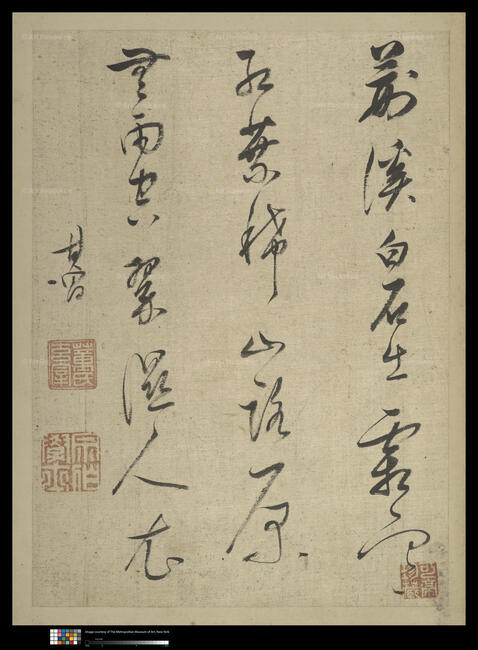 荊溪白石出霜
紅葉稀山路原
無雨空翠濕人衣
其昌
Image courtesy of The Metropolitan Museum of Art, New York